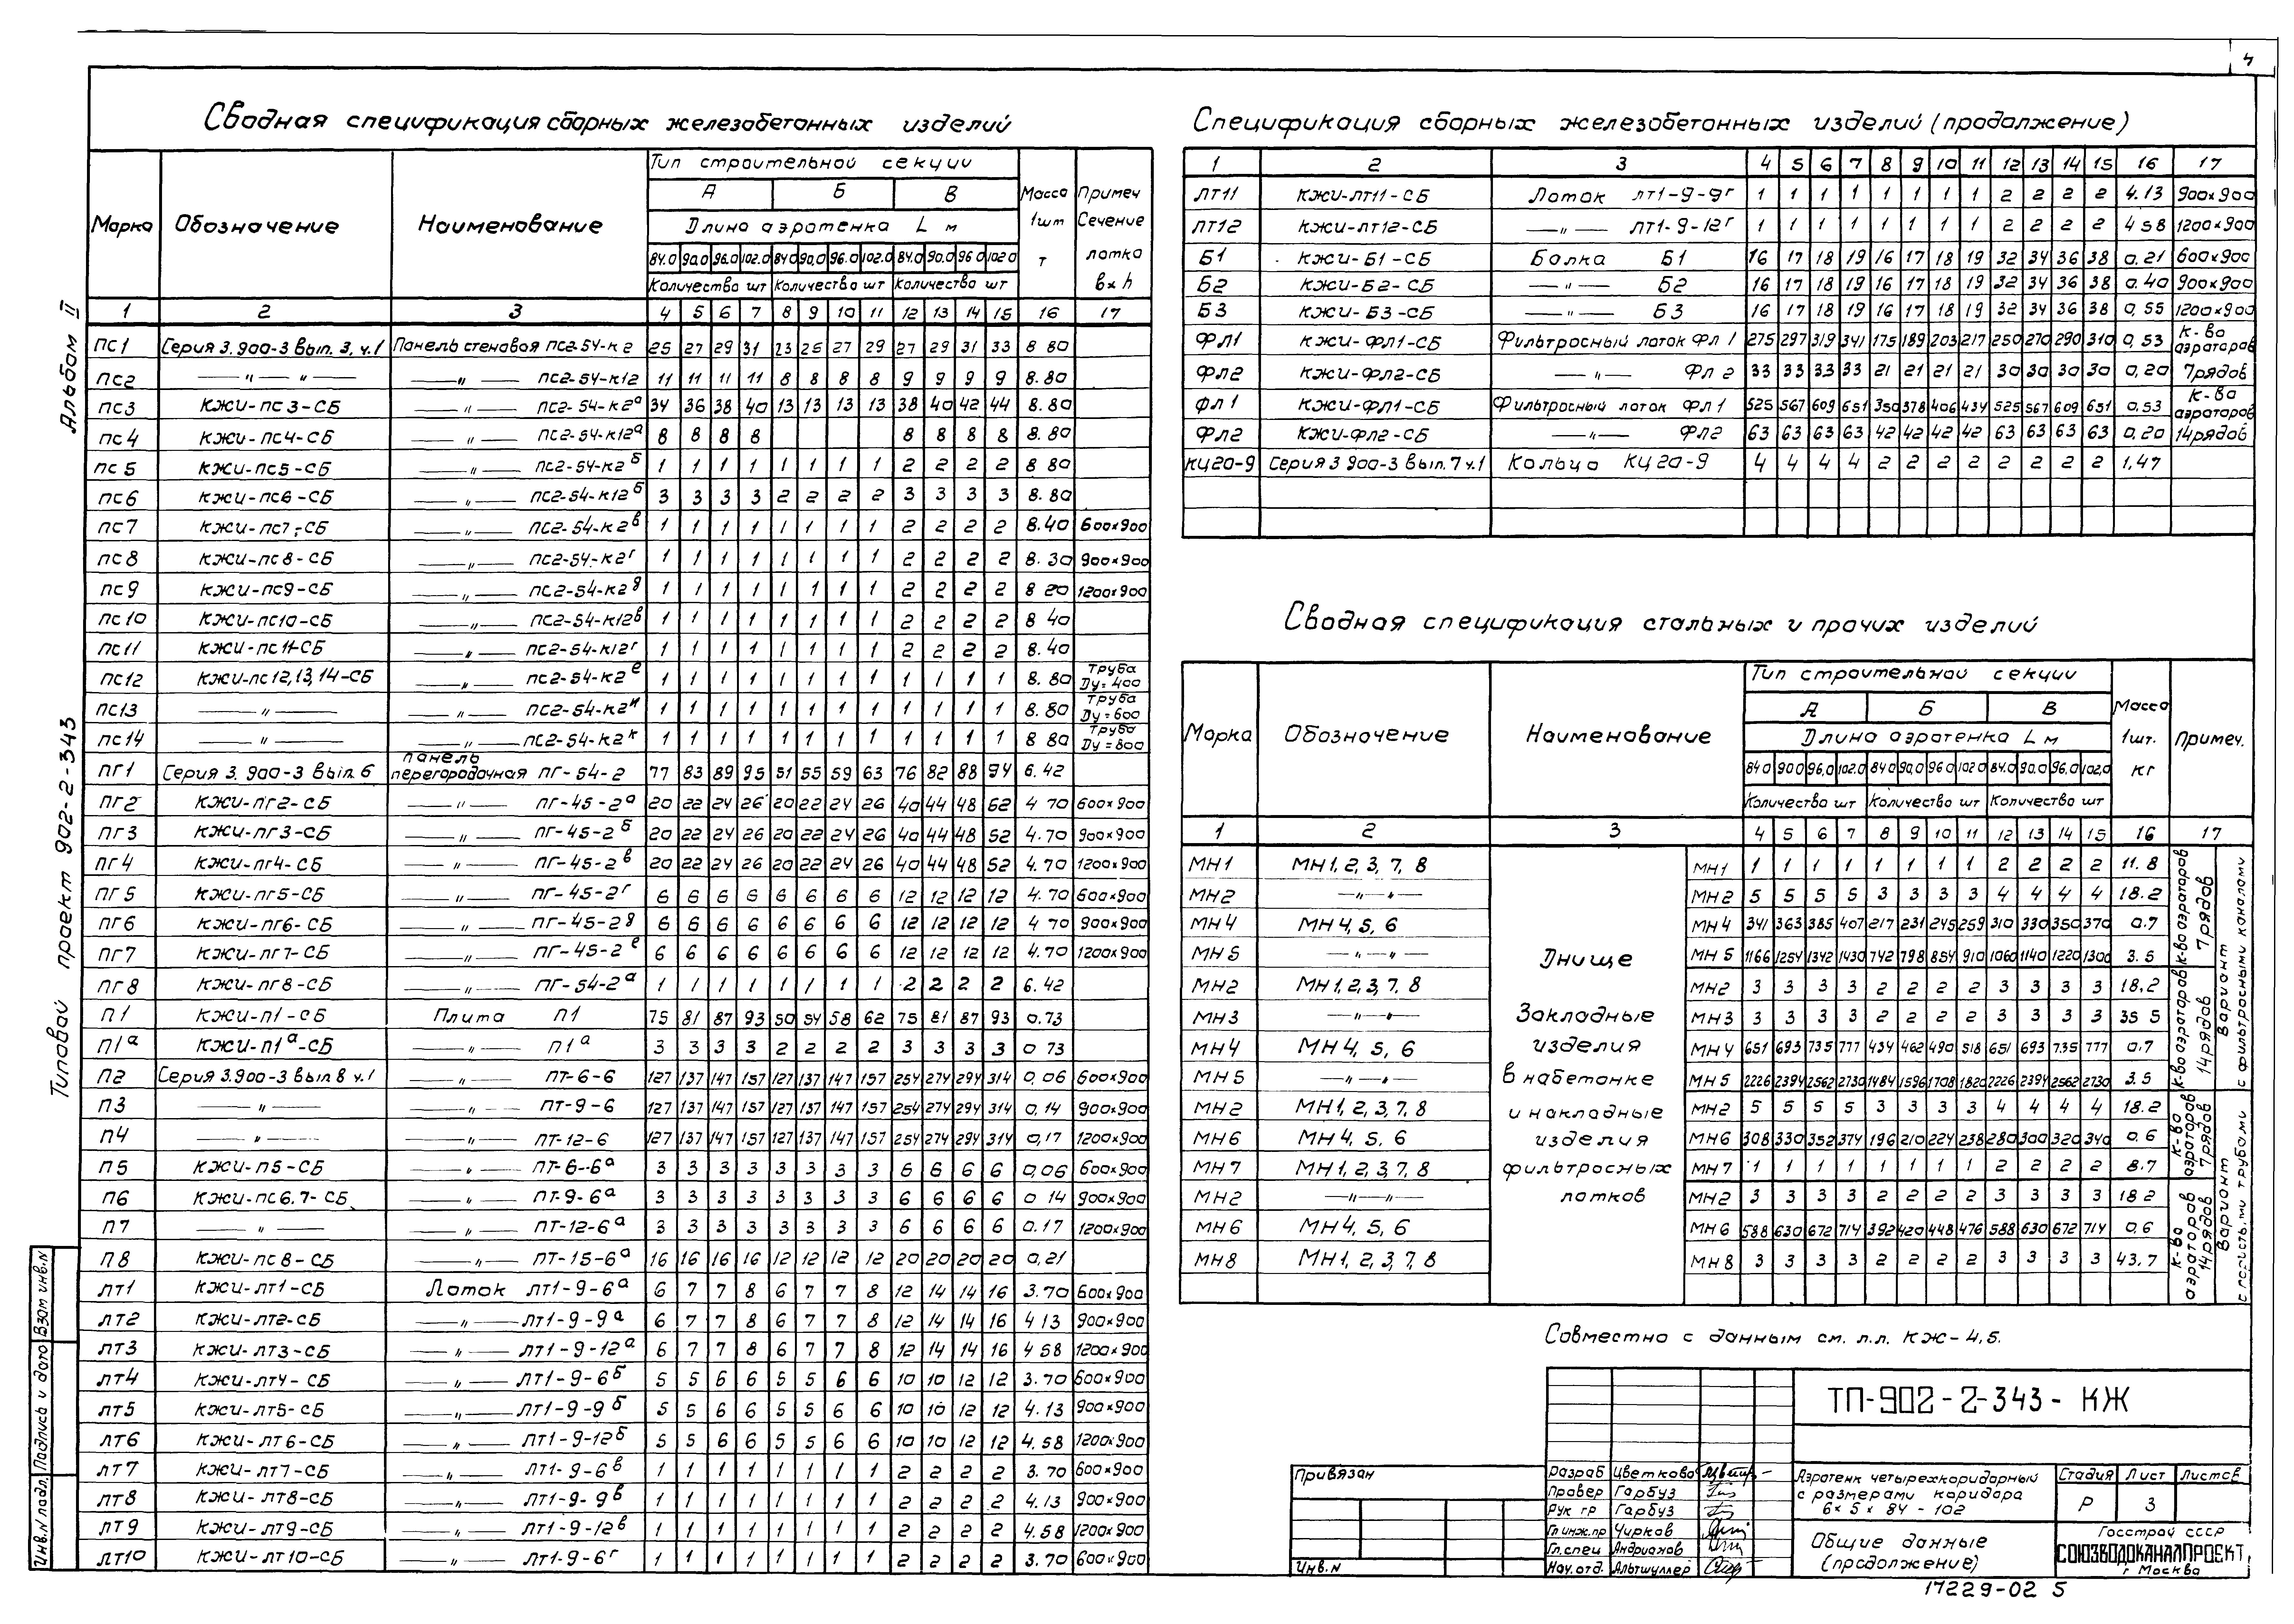 4
Сводная спецификация сборных железобетонных изделий
Марка | Обозначение | Наименование | Тип строительной секции | Масса 1шт т | Примеч Сечение лотка b×h
А | Б | В
Длина аэротенка L м
84.0 90.0 96.0 102.0 84.0 90.0 96.0 102.0 84.0 90.0 96.0 102.0
Количество шт | Количество шт | Количество шт
1 2 3 4 5 6 7 8 9 10 11 12 13 14 15 16 17
ПС1 Серия 3.900-3 вып. 3, ч.1 Панель стеновая ПС2-54-К2 25 27 29 31 23 25 27 29 27 29 31 33 8 80
ПС2 —〃— 〃— —〃— ПС2-54-К12 11 11 11 11 8 8 8 8 9 9 9 9 8.80
ПС3 КЖИ-ПС3-СБ —〃— ПС2-54-К2а 34 36 38 40 13 13 13 13 38 40 42 44 8.80
ПС4 КЖИ-ПС4-СБ —〃— ПС2-54-К12а 8 8 8 8 8 8 8 8 8.80
ПС5 КЖИ-ПС5-СБ —〃— ПС2-54-К2б 1 1 1 1 1 1 1 1 2 2 2 2 8 80
ПС6 КЖИ-ПС6-СБ —〃— ПС2-54-К12б 3 3 3 3 2 2 2 2 3 3 3 3 8.80
ПС7 КЖИ-ПС7-СБ —〃— ПС2-54-К2в 1 1 1 1 1 1 1 1 2 2 2 2 8.40 600×900
ПС8 КЖИ-ПС8-СБ —〃— ПС2-54-К2г 1 1 1 1 1 1 1 1 2 2 2 2 8.30 900×900
ПС9 КЖИ-ПС9-СБ —〃— ПС2-54-К2д 1 1 1 1 1 1 1 1 2 2 2 2 8 20 1200×900
ПС10 КЖИ-ПС10-СБ —〃— ПС2-54-К12в 1 1 1 1 1 1 1 1 2 2 2 2 8 40
ПС11 КЖИ-ПС11-СБ —〃— ПС2-54-К12г 1 1 1 1 1 1 1 1 2 2 2 2 8.40
ПС12 КЖИ-ПС12,13,14-СБ —〃— ПС2-54-К2е 1 1 1 1 1 1 1 1 1 1 1 1 8.80 Труба Dу=400
ПС13 —〃— —〃— ПС2-54-К2и 1 1 1 1 1 1 1 1 1 1 1 1 8.80 Труба Dу=600
ПС14 —〃— —〃— ПС2-54-К2к 1 1 1 1 1 1 1 1 1 1 1 1 8 80 Труба Dу=800
ПГ1 Серия 3.900-3 вып. 6 Панель перегородочная ПГ-54-2 77 83 89 95 51 55 59 63 76 82 88 94 6.42
ПГ2 КЖИ-ПГ2-СБ —〃— ПГ-45-2а 20 22 24 26 20 22 24 26 40 44 48 52 4 70 600×900
ПГ3 КЖИ-ПГ3-СБ —〃— ПГ-45-2б 20 22 24 26 20 22 24 26 40 44 48 52 4.70 900×900
ПГ4 КЖИ-ПГ4-СБ —〃— ПГ-45-2в 20 22 24 26 20 22 24 26 40 44 48 52 4.70 1200×900
ПГ5 КЖИ-ПГ5-СБ —〃— ПГ-45-2г 6 6 6 6 6 6 6 6 12 12 12 12 4.70 600×900
ПГ6 КЖИ-ПГ6-СБ —〃— ПГ-45-2д 6 6 6 6 6 6 6 6 12 12 12 12 4 70 900×900
ПГ7 КЖИ-ПГ7-СБ —〃— ПГ-45-2е 6 6 6 6 6 6 6 6 12 12 12 12 4.70 1200×900
ПГ8 КЖИ-ПГ8-СБ —〃— ПГ-54-2а 1 1 1 1 1 1 1 1 2 2 2 2 6.42
П1 КЖИ-П1-СБ Плита П1 75 81 87 93 50 54 58 62 75 81 87 93 0.73
П1а КЖИ-П1а-СБ —〃— П1а 3 3 3 3 2 2 2 2 3 3 3 3 0 73
П2 Серия 3.900-3 вып 8 ч.1 —〃— ПТ-6-6 127 137 147 157 127 137 147 157 254 274 294 314 0,06 600×900
П3 —〃— —〃— ПТ-9-6 127 137 147 157 127 137 147 157 254 274 294 314 0,14 900×900
П4 —〃— —〃— ПТ-12-6 127 137 147 157 127 137 147 157 254 274 294 314 0,17 1200×900
П5 КЖИ-П5-СБ —〃— ПТ-6-6а 3 3 3 3 3 3 3 3 6 6 6 6 0,06 600×900
П6 КЖИ-ПС6.7-СБ —〃— ПТ-9-6а 3 3 3 3 3 3 3 3 6 6 6 6 0 14 900×900
П7 —〃— —〃— ПТ-12-6а 3 3 3 3 3 3 3 3 6 6 6 6 0.17 1200×900
П8 КЖИ-ПС8-СБ —〃— ПТ-15-6а 16 16 16 16 12 12 12 12 20 20 20 20 0,21
ЛТ1 КЖИ-ЛТ1-СБ Лоток ЛТ1-9-6а 6 7 7 8 6 7 7 8 12 14 14 16 3.70 600×900
ЛТ2 КЖИ-ЛТ2-СБ —〃— ЛТ1-9-9а 6 7 7 8 6 7 7 8 12 14 14 16 4 13 900×900
ЛТ3 КЖИ-ЛТ3-СБ —〃— ЛТ1-9-12а 6 7 7 8 6 7 7 8 12 14 14 16 4 58 1200×900
ЛТ4 КЖИ-ЛТ4-СБ —〃— ЛТ1-9-6б 5 5 6 6 5 5 6 6 10 10 12 12 3.70 600×900
ЛТ5 КЖИ-ЛТ5-СБ —〃— ЛТ1-9-9б 5 5 6 6 5 5 6 6 10 10 12 12 4.13 900×900
ЛТ6 КЖИ-ЛТ6-СБ —〃— ЛТ1-9-12б 5 5 6 6 5 5 6 6 10 10 12 12 4.58 1200×900
ЛТ7 КЖИ-ЛТ7-СБ —〃— ЛТ1-9-6в 1 1 1 1 1 1 1 1 2 2 2 2 3.70 600×900
ЛТ8 КЖИ-ЛТ8-СБ —〃— ЛТ1-9-9в 1 1 1 1 1 1 1 1 2 2 2 2 4.13 900×900
ЛТ9 КЖИ-ЛТ9-СБ —〃— ЛТ1-9-12в 1 1 1 1 1 1 1 1 2 2 2 2 4.58 1200×900
ЛТ10 КЖИ-ЛТ10-СБ —〃— ЛТ1-9-6г 1 1 1 1 1 1 1 1 2 2 2 2 3.70 600×900
Спецификация сборных железобетонных изделий (продолжение)
1 2 3 4 5 6 7 8 9 10 11 12 13 14 15 16 17
ЛТ11 КЖИ-ЛТ11-СБ Лоток ЛТ1-9-9г 1 1 1 1 1 1 1 1 2 2 2 2 4.13 900×900
ЛТ12 КЖИ-ЛТ12-СБ —〃— ЛТ1-9-12г 1 1 1 1 1 1 1 1 2 2 2 2 4 58 1200×900
Б1 КЖИ-Б1-СБ Балка Б1 16 17 18 19 16 17 18 19 32 34 36 38 0.21 600×900
Б2 КЖИ-Б2-СБ —〃— Б2 16 17 18 19 16 17 18 19 32 34 36 38 0.40 900×900
Б3 КЖИ-Б3-СБ —〃— Б3 16 17 18 19 16 17 18 19 32 34 36 38 0,55 1200×900
ФЛ1 КЖИ-ФЛ1-СБ Фильтросный лоток ФЛ1 275 297 319 341 175 189 203 217 250 270 290 310 0,53 К-во аэраторов
ФЛ2 КЖИ-ФЛ2-СБ —〃— ФЛ2 33 33 33 33 21 21 21 21 30 30 30 30 0,20 7рядов
ФЛ1 КЖИ-ФЛ1-СБ Фильтросный лоток ФЛ1 525 567 609 651 350 378 406 434 525 567 609 651 0,53 К-во аэраторов
ФЛ2 КЖИ-ФЛ2-СБ —〃— ФЛ2 63 63 63 63 42 42 42 42 63 63 63 63 0,20 14рядов
КЦ20-9 Серия 3 900-3 вып. 7 ч.1 Кольцо КЦ20-9 4 4 4 4 2 2 2 2 2 2 2 2 1,47
Сводная спецификация стальных и прочих изделий
Марка | Обозначение | Наименование | Тип строительной секции | Масса 1шт. кг | Примеч.
А | Б | В
Длина аэротенка L м
84 0 90 0 96,0 102.0 84 0 90,0 96 0 102 0 84.0 90.0 96,0 102,0
Количество шт | Количество шт | Количество шт
1 2 3 4 5 6 7 8 9 10 11 12 13 14 15 16 17
МН1 МН1,2,3,7,8 МН1 1 1 1 1 1 1 1 1 2 2 2 2 11.8
МН2 —〃— МН2 5 5 5 5 3 3 3 3 4 4 4 4 18.2
МН4 МН4,5,6 МН4 341 363 385 407 217 231 245 259 310 330 350 370 0.7
МН5 —〃— МН5 1166 1254 1342 1430 742 798 854 910 1060 1140 1220 1300 3.5
МН2 МН1,2,3,7,8 МН2 3 3 3 3 2 2 2 2 3 3 3 3 18.2
МН3 —〃— МН3 3 3 3 3 2 2 2 2 3 3 3 3 35 5
МН4 МН4,5,6 МН4 651 693 735 777 434 462 490 518 651 693 735 777 0.7
МН5 —〃— МН5 2226 2394 2562 2730 1484 1596 1708 1820 2226 2394 2562 2730 3.5
МН2 МН1,2,3,7,8 МН2 5 5 5 5 3 3 3 3 4 4 4 4 18.2
МН6 МН4,5,6 МН6 308 330 352 374 196 210 224 238 280 300 320 340 0.6
МН7 МН1,2,3,7,8 МН7 1 1 1 1 1 1 1 1 2 2 2 2 8.7
МН2 —〃—〃— МН2 3 3 3 3 2 2 2 2 3 3 3 3 18 2
МН6 МН4,5,6 МН6 588 630 672 714 392 420 448 476 588 630 672 714 0.6
МН8 МН1,2,3,7,8 МН8 3 3 3 3 2 2 2 2 3 3 3 3 43.7
Днище
Закладные
изделия
в набетонке
и накладные
изделия
фильтросных
лотков
К-во аэраторов 7рядов
К-во аэраторов 14рядов
Вариант с фильтросными каналами
К-во аэраторов 7рядов
К-во аэраторов 14рядов
Вариант с пористыми трубами
Совместно с данным см. л.л. КЖ-4,5.
ТП-902-2-343-КЖ
Привязан
Инв.N
Разраб Цветкова
Провер Гарбуз
Рук гр Гарбуз
Гл инж.пр Чирков
Гл.спец Андрианов
Нач.отд. Альтшуллер
Аэротенк четырехкоридорный
с размерами коридора
6×5×84-102
Стадия Лист Листов
Р 3
Общие данные
(продолжение)
Госстрой СССР
СОЮЗВОДОКАНАЛПРОЕКТ
г Москва
17229-02 5
Альбом II
Типовой проект 902-2-343
Взам инв.N
Подпись и дата
Инв.N подл.